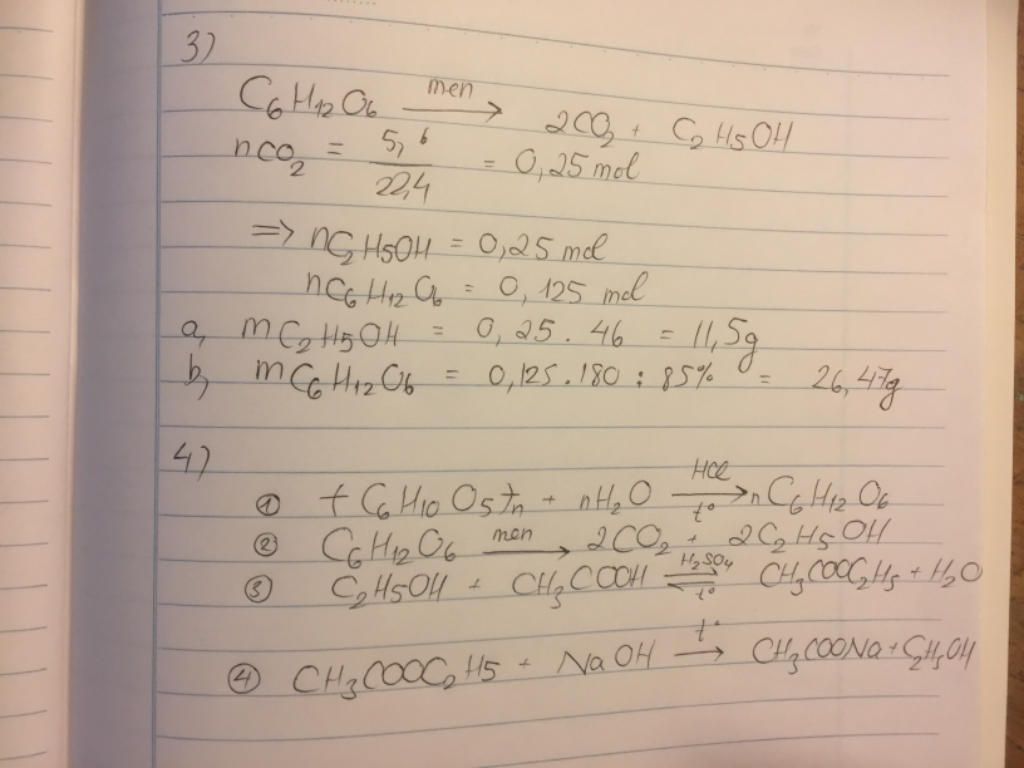 3)
C6H12O6 men → 2CO2 + C2H5OH
nCO2 = 5,6 / 22,4 = 0,25 mol
=> nC2H5OH = 0,25 mol
nC6H12O6 = 0,125 mol
a, mC2H5OH = 0,25 . 46 = 11,5g
b, mC6H12O6 = 0,125 . 180 : 85% = 26,47g
4)
① (C6H10O5)n + nH2O HCl → t° nC6H12O6
② C6H12O6 men → 2CO2 + 2C2H5OH
③ C2H5OH + CH3COOH H2SO4 ⇌ t° CH3COOC2H5 + H2O
④ CH3COOC2H5 + NaOH t° → CH3COONa + C2H5OH